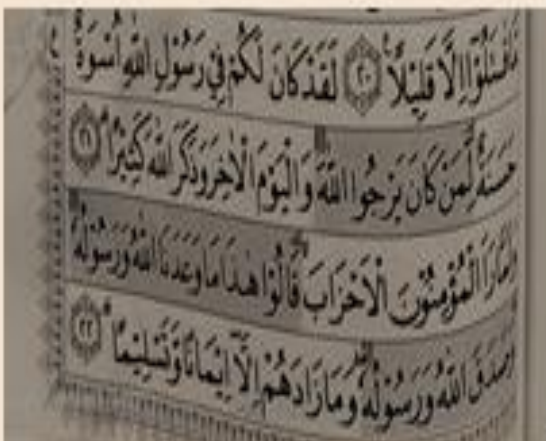 مَّا قٰتَلُوْۤا اِلَّا قَلِيْلًا ﴿۲۰﴾ لَقَدْ كَانَ لَكُمْ فِيْ رَسُوْلِ اللّٰهِ اُسْوَةٌ
حَسَنَةٌ لِّمَنْ كَانَ يَرْجُوا اللّٰهَ وَالْيَوْمَ الْاٰخِرَ وَذَكَرَ اللّٰهَ كَثِيْرًا ﴿۲۱﴾
وَلَمَّا رَاَ الْمُؤْمِنُوْنَ الْاَحْزَابَ قَالُوْا هٰذَا مَا وَعَدَنَا اللّٰهُ وَرَسُوْلُهٗ
وَصَدَقَ اللّٰهُ وَرَسُوْلُهٗ وَمَا زَادَهُمْ اِلَّاۤ اِيْمَانًا وَّتَسْلِيْمًا ﴿۲۲﴾